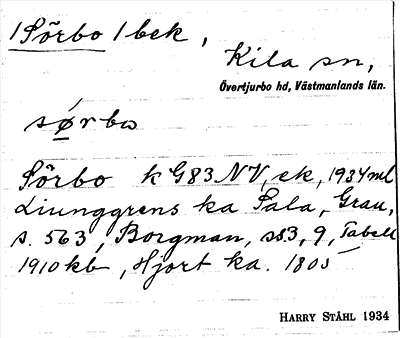 1 Sörbo 1 bek,
Kila sn,
Övertjurbo hd, Västmanlands län.
sø̀rbω
Sörbo k G83 NV, ek, 1934 ml
Ljunggrens ka Sala, Grau,
s. 563, Borgman, ss3, 9, Tabell
1910 kb, Hjort ka. 1805
HARRY STÅHL 1934